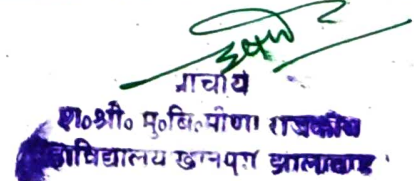 प्राचार्य
श०श्री० मु०बि०मीणा राजकीय
महाविद्यालय खानपुर झालावाड़